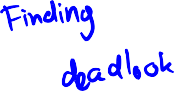 Finding
deadlook